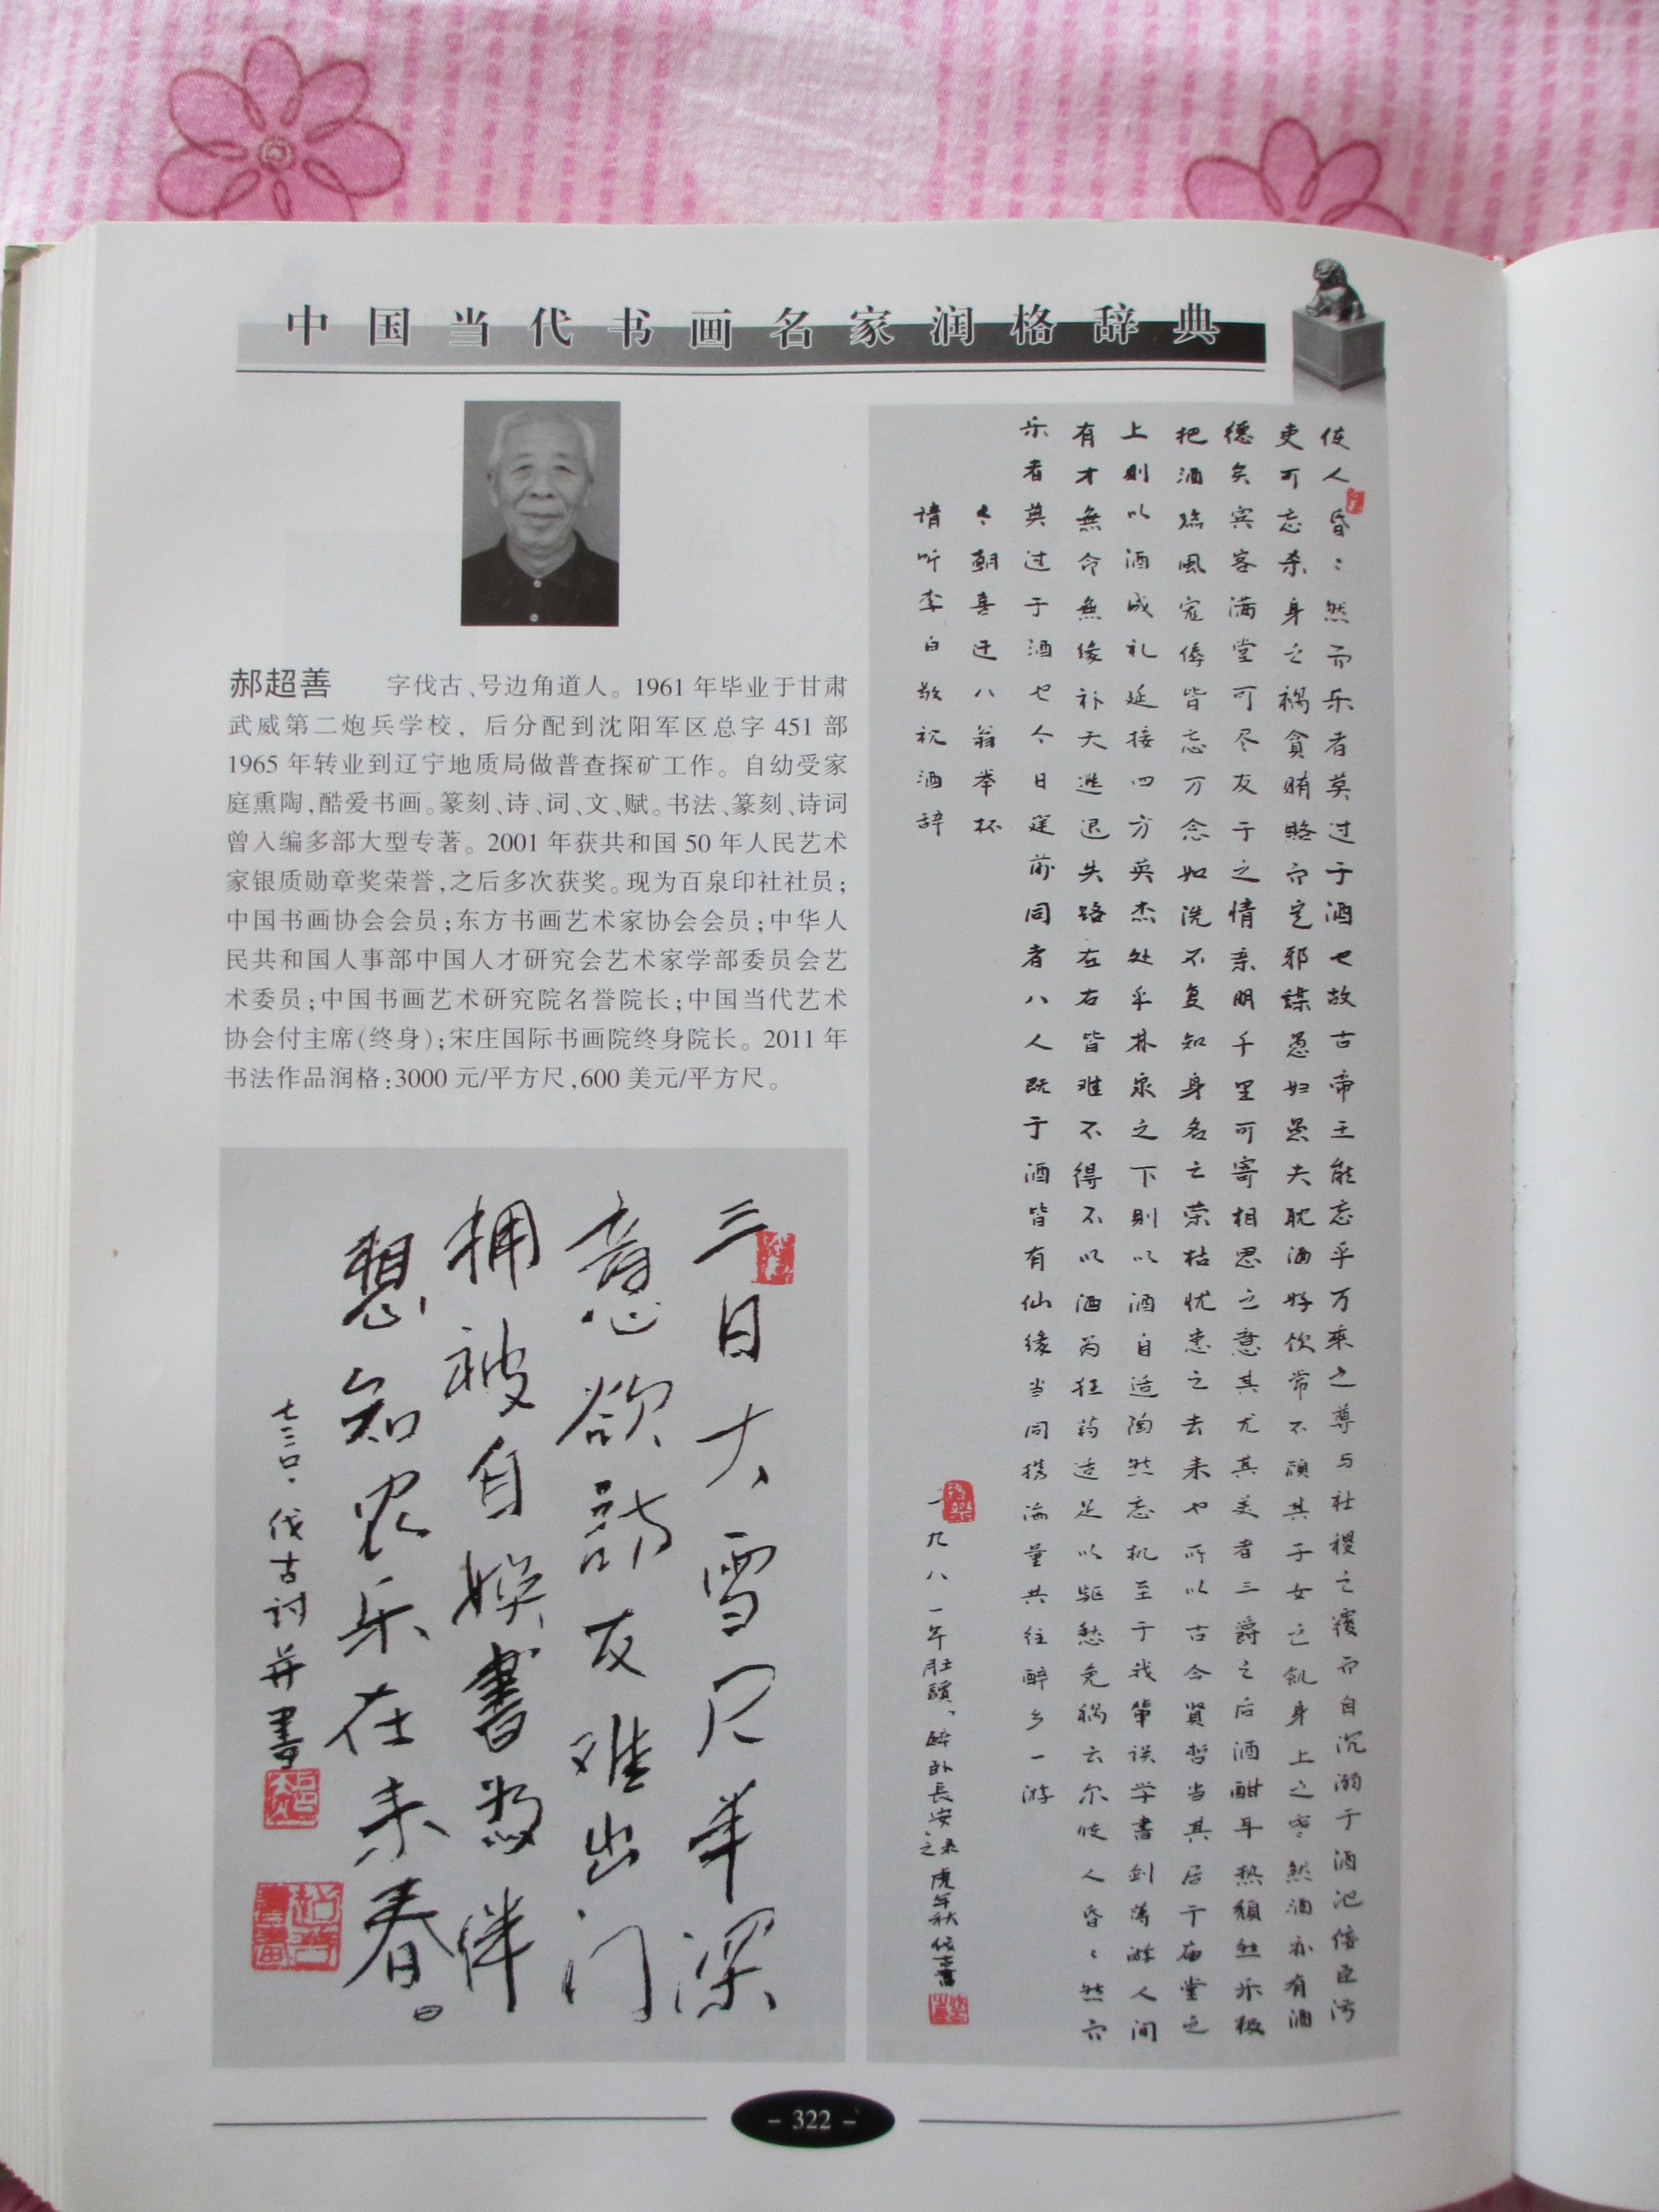 中国当代书画名家润格辞典
郝超善 字伐古、号边角道人。1961年毕业于甘肃
武威第二炮兵学校，后分配到沈阳军区总字451部
1965年转业到辽宁地质局做普查探矿工作。自幼受家
庭熏陶,酷爱书画。篆刻、诗、词、文、赋。书法、篆刻、诗词
曾入编多部大型专著。2001年获共和国50年人民艺术
家银质勋章奖荣誉,之后多次获奖。现为百泉印社社员;
中国书画协会会员;东方书画艺术家协会会员;中华人
民共和国人事部中国人才研究会艺术家学部委员会艺
术委员;中国书画艺术研究院名誉院长;中国当代艺术
协会付主席(终身);宋庄国际书画院终身院长。2011年
书法作品润格:3000元/平方尺,600美元/平方尺。
使人昏〻然而乐者莫过于酒也故古帝王能忘乎万乘之尊与社稷之覆而自沉溺于酒池倿臣污
吏可忘杀身之祸贪贿赂而定邪谋愚妇愚夫耽酒好饮常不顾其子女之饥身上之寒然酒亦有酒
德矣宾客满堂可尽友于之情亲朋千里可寄相思之意其尤其美者三爵之后酒酣耳热颓然乐极
把酒临風宠辱皆忘万念如洗不复知身名之荣枯忧患之去来也所以古今賢哲当其居于庙堂之
上則以酒成礼延接四方英杰处乎林泉之下則以酒自适陶然忘机至于我辈误学書剑落游人间
有才無命無缘补天進退失路左右皆难不得不以酒为狂药造足以駆愁免祸云尔使人昏〻然六
乐者莫过于酒也今日筵前同者八人既于酒皆有仙缘当同携海量共往醉乡一游
〻朝喜迁八翁举杯
请听李白敬祝酒辞
一九八一年
虎年秋伐古書
三日大雪尺半深
意欲訪友难出门
拥被自娱書为伴
想知农乐在来春
七二〇、伐古诗并書
- 322 -